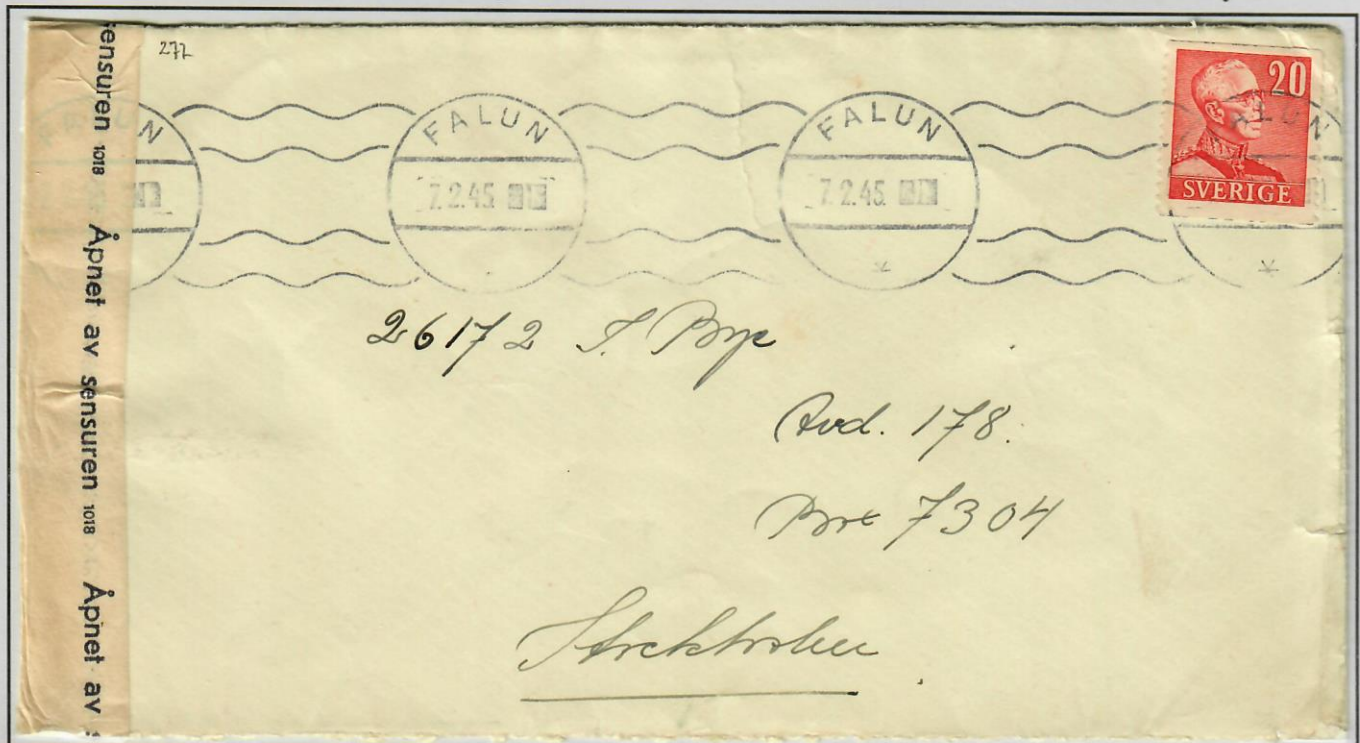 277
ensuren 1018 Åpnet av sensuren 1018 Åpnet av s
FALUN
7.2.45
FALUN
7.2.45
20
SVERIGE
26172
Avd. 178.
Box 7304
Stockholm